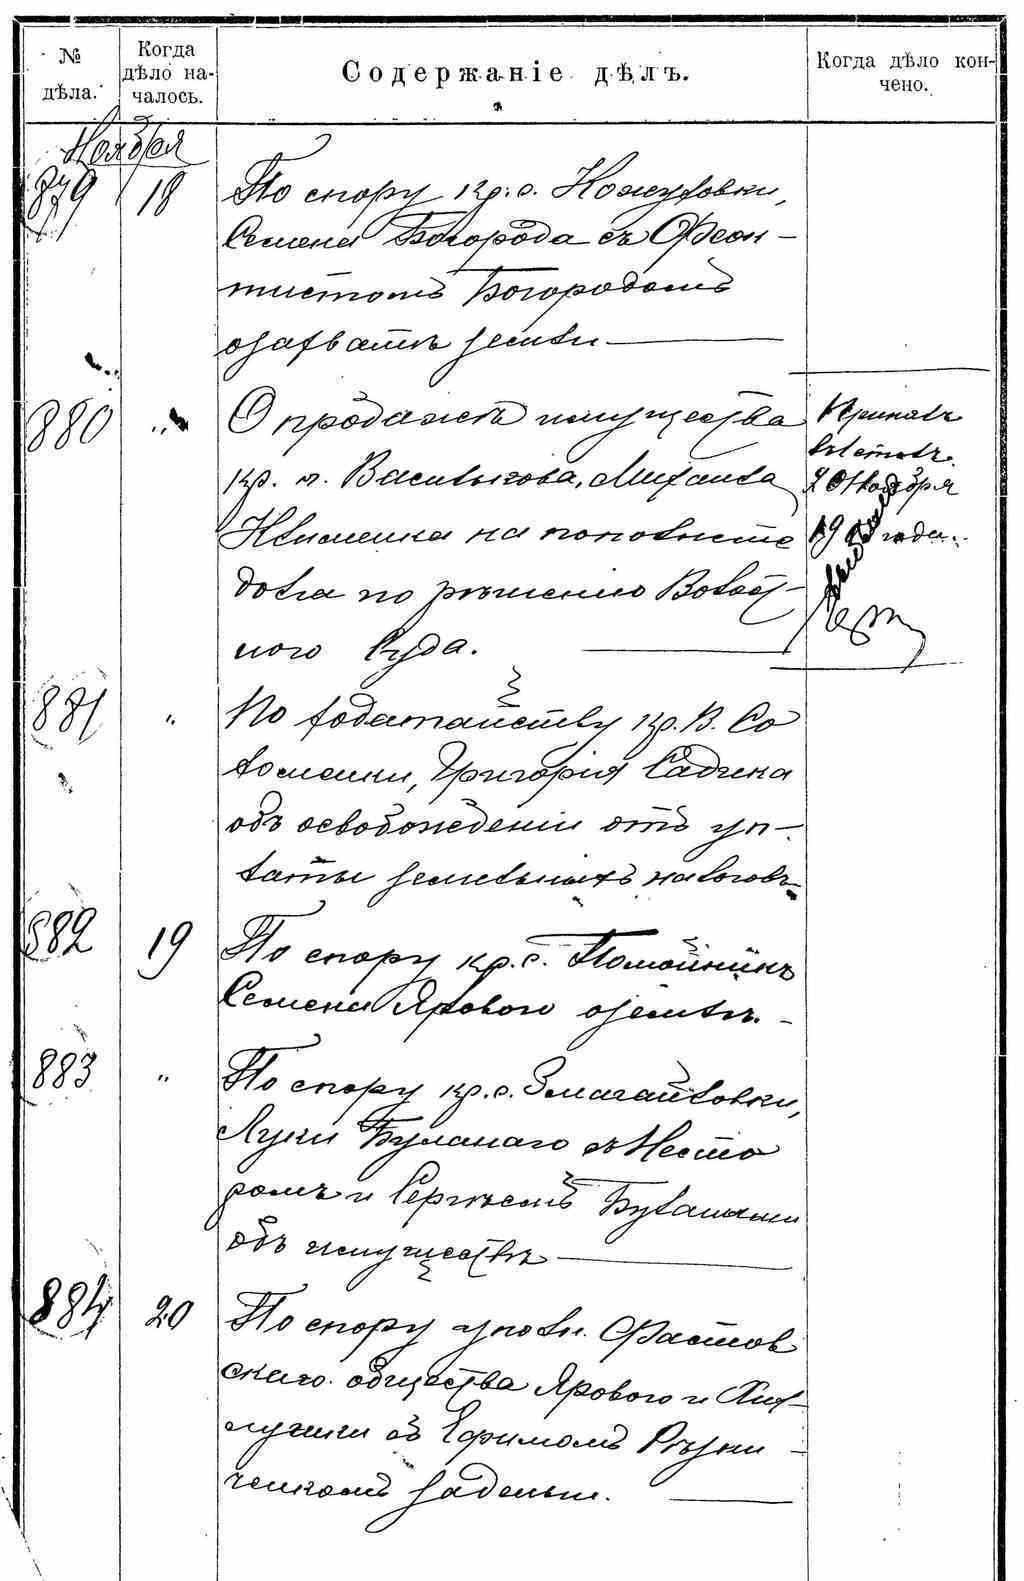 № дѣла.
Когда дѣло на-
чалось.
Содержаніе дѣлъ.
Когда дѣло кон-
чено.
Ноября
879 18 По спору кр. с. Кожуховки,
Семена Богорода съ Ѳеок-
тистомъ Богородомъ
о захватѣ земли
880 " О продажѣ имущества
кр. м. Василькова, Михаила
Клименка на пополненіе
долга по рѣшенію Волост-
ного Суда.
20 Ноября
года.
881 " По ходатайству кр. В. Со
ломенки, Григорія Садчека
объ освобожденіи отъ уп-
латы земельныхъ налоговъ
882 19 По спору кр. с. Помойникъ
Семена Ярового о землѣ.
883 " По спору кр. с. Змагайловки,
Луки Буланаго съ Несто
ромъ и Сергѣемъ Булаными
объ имуществѣ
884 20 По спору уполн. Фастов
скаго общества Ярового и
съ Ефимомъ Рѣзни-
ченкомъ за деньги.